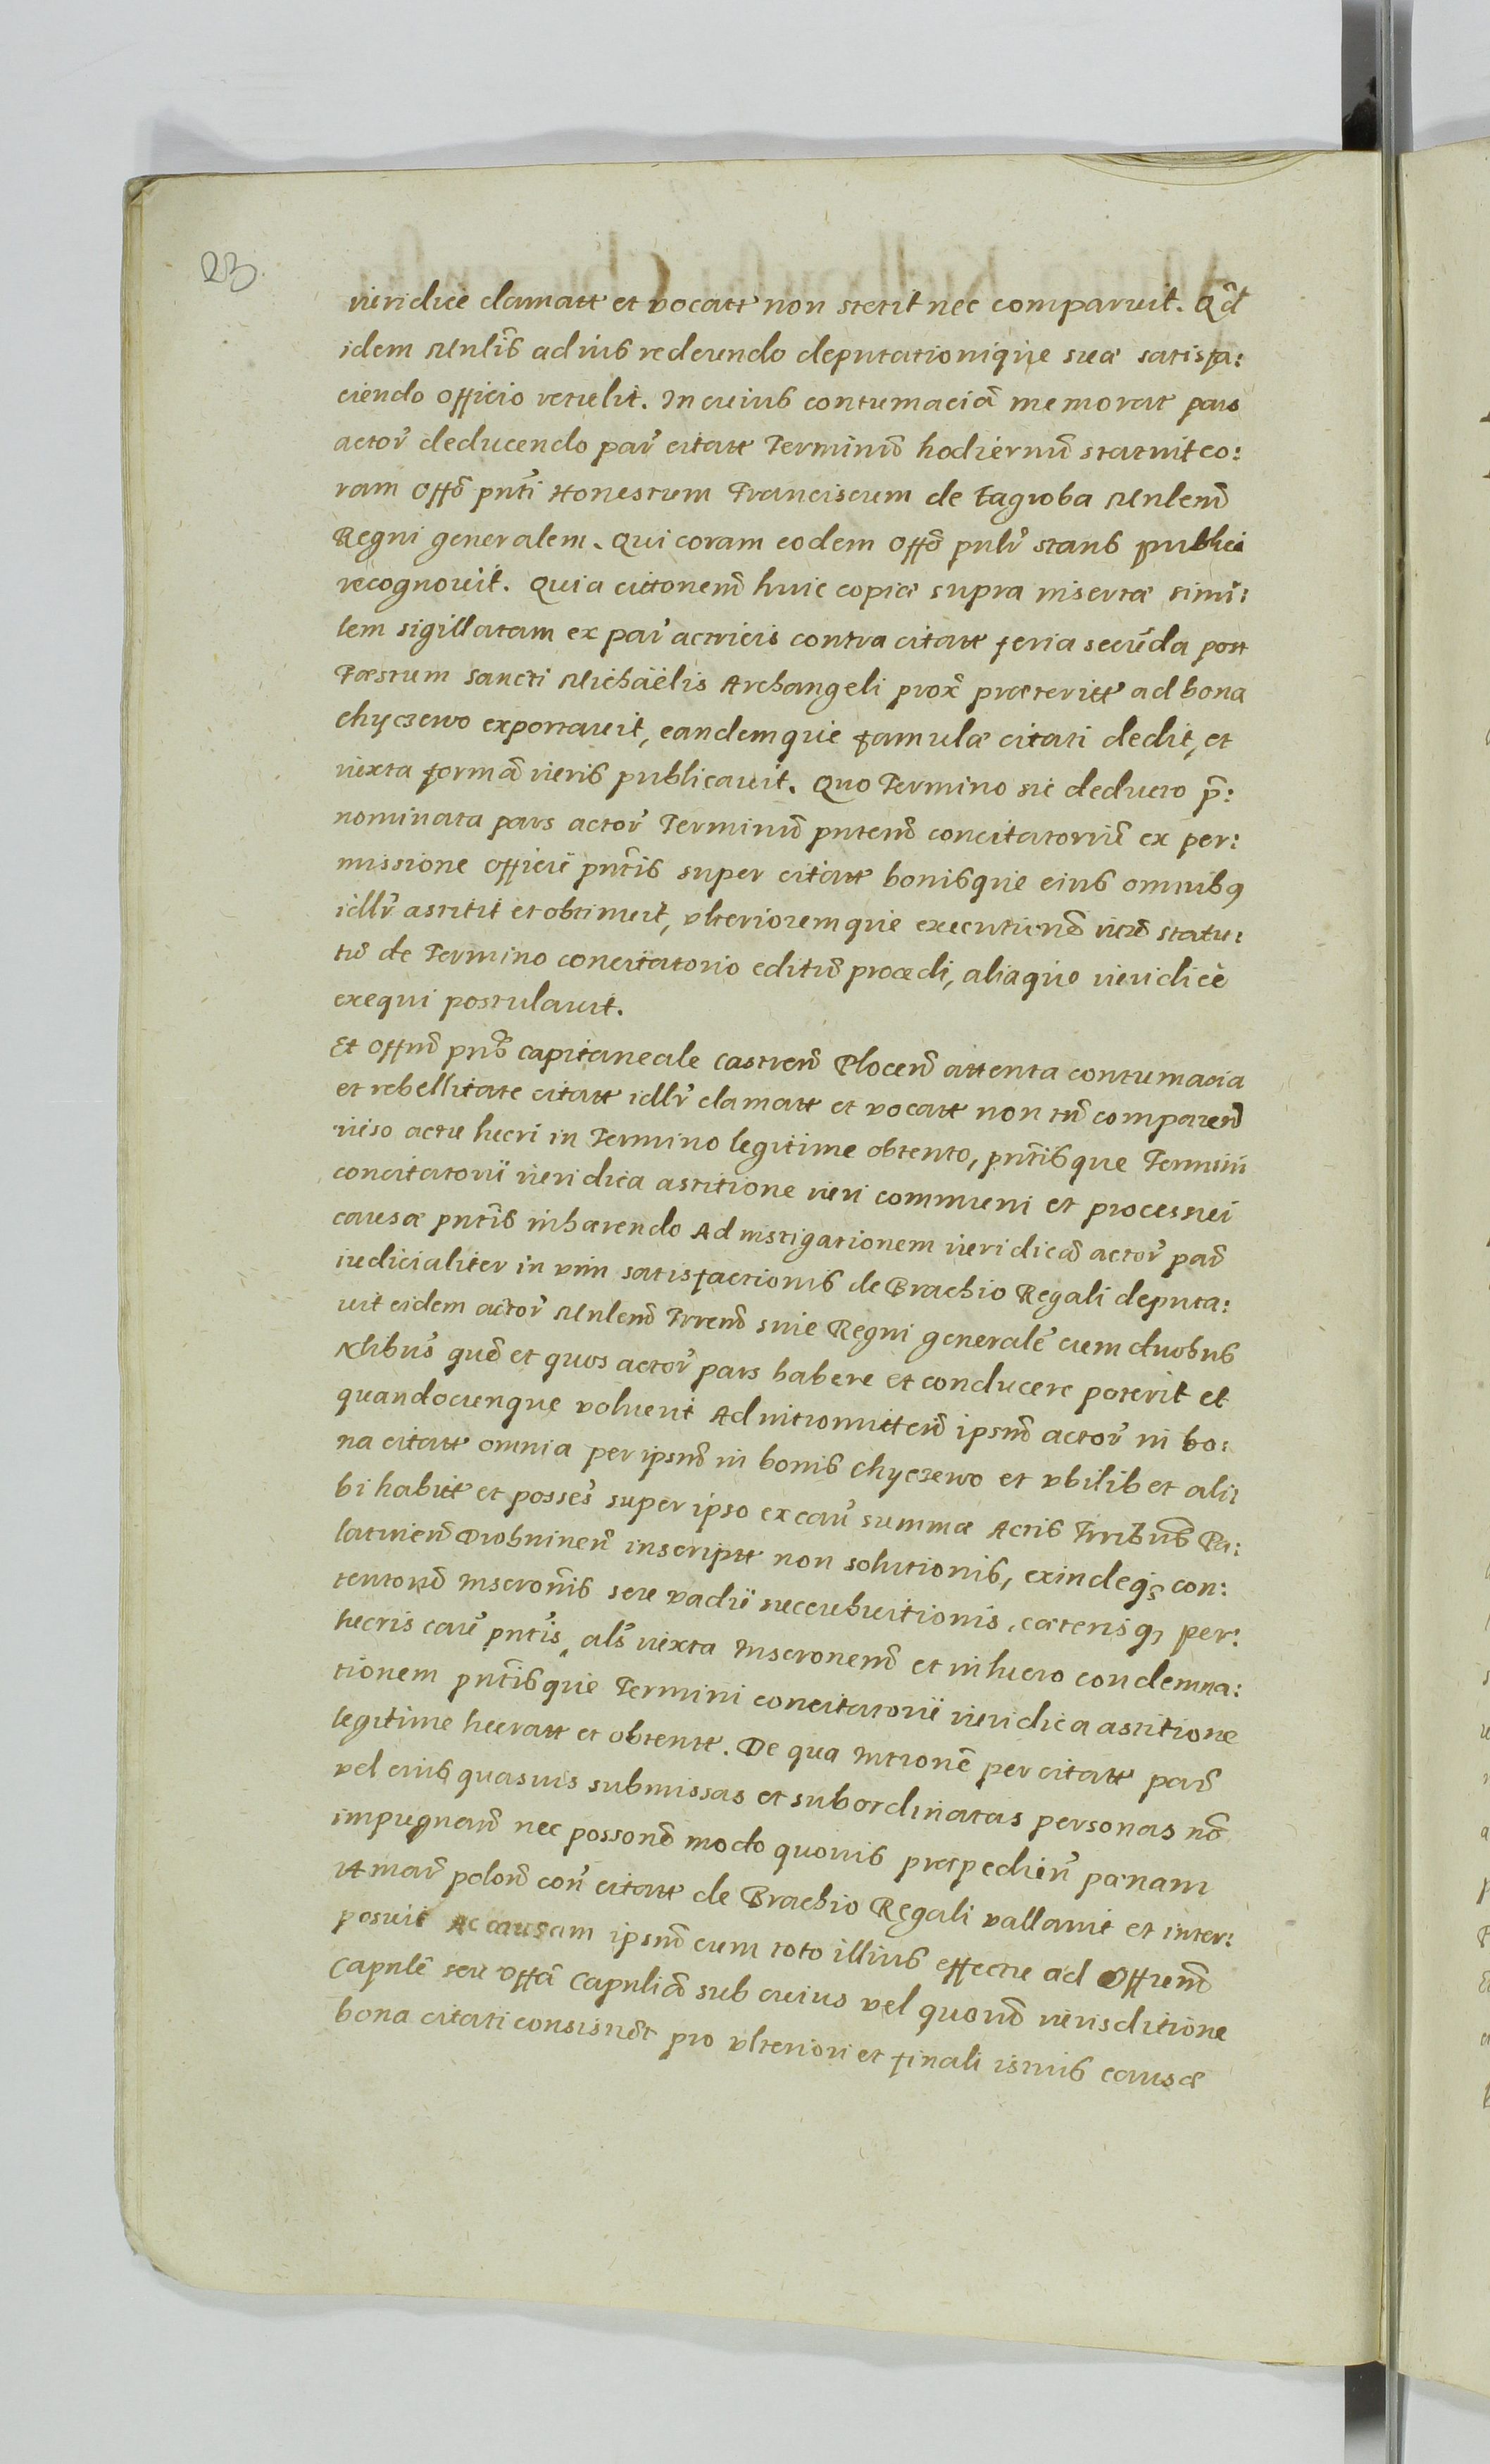 23.
iuridice clamatt et vocatt non stetit nec comparuit. Qd
idem Mnlis ad ius redeundo deputationique suæ satisfa:
ciendo officio retulit. In cuius contumaciã memorat pars
actor deducendo par citatt Terminũ hodiernũ statuit co:
ram Offo pnti Honestum Franciscum de Łagroba Mnlem
Regni generalem. Qui coram eodem Offo pnlr stans publice
recognovit. Quia citonem huic copiæ supra insertæ simi:
lem sigillatam ex par actricis contra citatt feria secũda post
Fæstum Sancti Michaëlis Archangeli prox præteritt ad bona
Chyczewo exportauit, eandemque famulæ citati dedit, et
iuxta formã iuris publicauit. Quo Termino sic deducto p̃:
nominata pars actor Terminũ pntem concitatoriũ ex per:
missione officii pntis super citatt bonisque eius omnibq
idlr astitit et obtinuit, vlterioremque executionẽ iuxã statu:
tũ de Termino concitatorio editũ procedi, aliaque iuridicè
exequi postulauit.
Et Offm pns Capitaneale Castren Plocen attenta contumacia
et rebellitate citatt idlr clamatt et vocatt non tñ comparen
viso actu lucri in Termino legitime obtento, pntisque Termini
concitatorii iuridica astitione iuri communi et processui
causæ pntis inhærendo Ad instigationem iuridicã actor par
iudicialiter in vim satisfactionis de Brachio Regali deputa:
uit eidem actor Mnlem Trrem siue Regni generalẽ cum duobus
Nlibus quẽ et quos actor pars habere et conducere poterit et
quandocunque voluerit Ad intromitten ipsm actor in bo:
na citatt omnia per ipsm in bonis Chyczewo et vbilibet ali:
bi habitt et posses super ipso ex cau summæ Actis Trribus Pa:
latinen Drohninen inscriptt non solutionis, exindeq con:
tentorũ Inscronis seu vadii succubuitionis, cæterisq per:
lucris cau pntis, als iuxta Inscronem et in lucro condemna:
tionem pntisque Termini concitatorii iuridica astitione
legitime lucratt et obtentt. De qua Intronẽ per citatt par
vel eius quasuis submissas et subordinatas personas nõ
impugnan nec possonẽ modo quouis præpedien pænam
14 mar polon con citatt de Brachio Regali vallauit et inter:
posuit Ac causam ipsm cum toto illius effectu ad Offium
Capnle seu Offa Capnlia sub cuius vel quorũ iurisditione
bona citati consistñt pro vlteriori et finali istius causæ